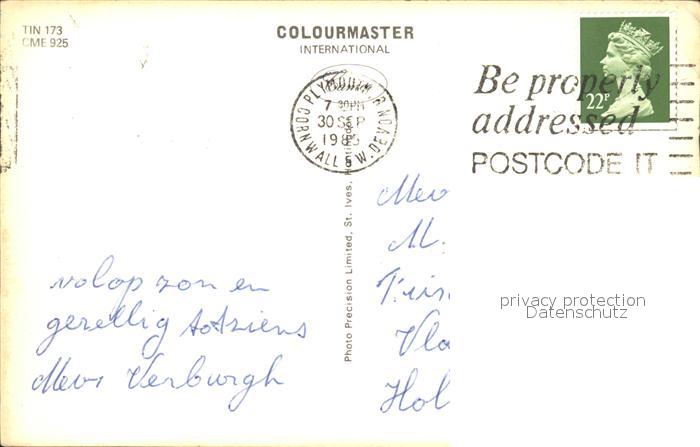 TIN 173
CME 925
COLOURMASTER
INTERNATIONAL
PLYMOUTH
7 30PM
30 SEP
1985
CORNWALL & W. DEVON
22P
Be properly
addressed
POSTCODE IT
Photo Precision Limited, St. Ives,
volop zon en
gezellig totziens
Mevr Verburgh
Mev
M.
Vla
Hol
privacy protection
Datenschutz